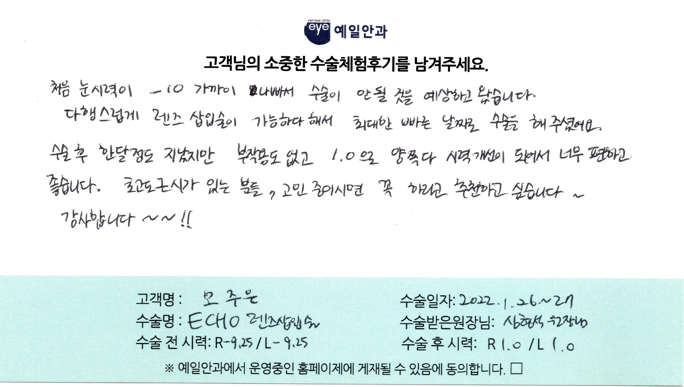 eye 예일안과
고객님의 소중한 수술체험후기를 남겨주세요.
처음 눈시력이 -10 가까이 나빠서 수술이 안될 것을 예상하고 왔습니다.
다행스럽게 렌즈 삽입술이 가능하다해서 최대한 빠른 날짜로 수술을 해주셨어요.
수술 후 한달정도 지났지만 부작용도 없고 1.0으로 양쪽다 시력개선이 되어서 너무 편하고
좋습니다. 초고도근시가 있는 분들, 고민 중이시면 꼭 하라고 추천하고 싶습니다 ~
감사합니다 ~~!!
고객명 : 모주은
수술일자: 2022.1.26~27
수술명 : ECHO 렌즈삽입술
수술받은원장님: 원장님
수술 전 시력: R-9.25 / L-9.25
수술 후 시력: R 1.0 / L 1.0
※ 예일안과에서 운영중인 홈페이제에 게재될 수 있음에 동의합니다. □